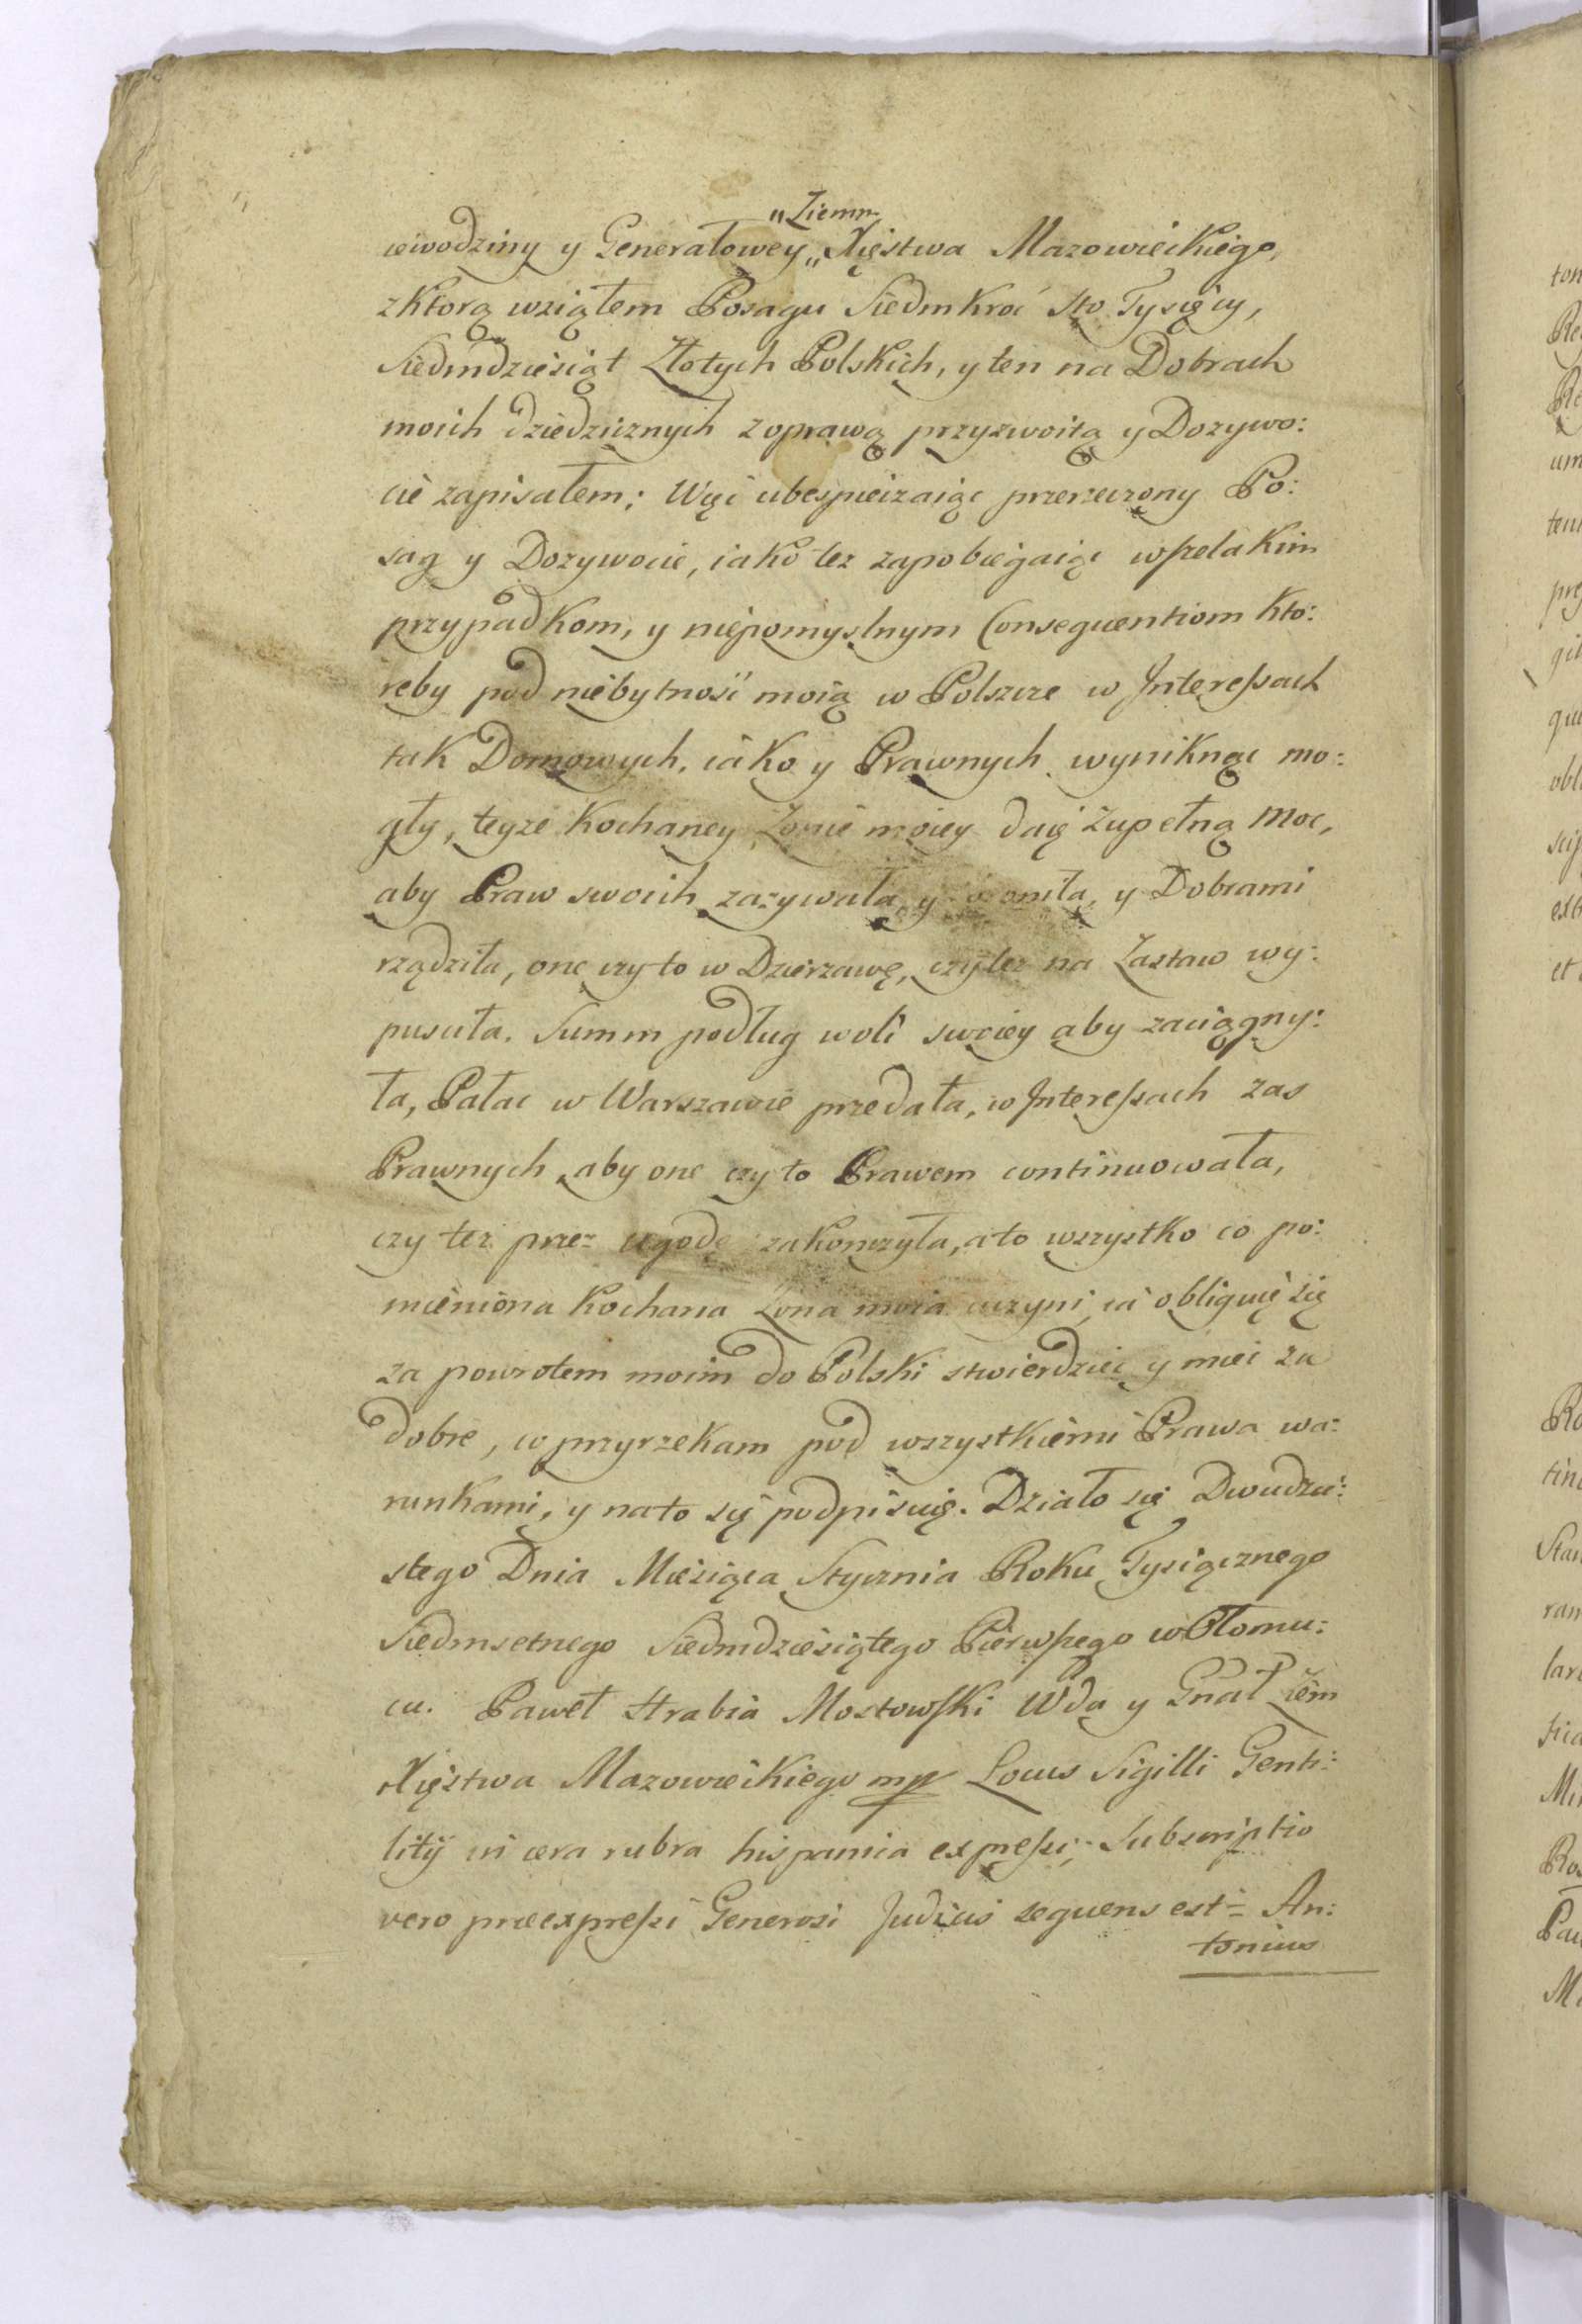 „Ziemn.
iewodziny y Generałowey „ Xięstwa Mazowieckiego,
zktorą wziąłem Posagu Siedmkroć sto Tysięcy,
Siedmdziesiąt Złotych Polskich, y ten na Dobrach
moich dziedzicznych z oprawą przyzwoitą y Dozywo:
cie zapisałem; Więc ubespieczaiąc przerzeczony Po:
sag y Dozywocie, iako tez zapobiegaiąc wszelakim
przypadkom, y niepomyslnym Consequentiom kto:
reby pod niebytność moią w Polszcze w Interessach
tak Domowych, iako y Prawnych wyniknąc mo:
gły, teyze Kochaney Zonie moiey daię zupełną Moc,
aby Praw swoich zazywała, y broniła, y Dobrami
rządziła, one czy to w Dzierzawę, czy tez na Zastaw wy:
pusciła. Summ podług woli swoiey aby zaciągny:
ła, Pałac w Warszawie przedała, w Interessach zas
Prawnych, aby one czy to Prawem continuowała,
czy tez przez ugodę zakonczyła, a to wszystko co po:
mieniona Kochana Zona moia uczyni, ia obliguię się
za powrotem moim do Polski stwierdzic y miec za
dobre, co przyrzekam pod wszystkiemi Prawa wa:
runkami, y na to się podpisuię. Działo się Dwudzie:
stego Dnia Miesiąca Stycznia Roku Tysiącznego
Siedmsetnego Siedmdziesiątego Pierwszego w Ołomu:
cu. Paweł Hrabia Mostowski Wda y Gnał Ziem
Xięstwa Mazowieckiego mp Locus Sigilli Genti:
litij in cera rubra hispanica expressi; Subscriptio
vero præexpressi Generosi Judicis sequens est = An:
tonius
1770